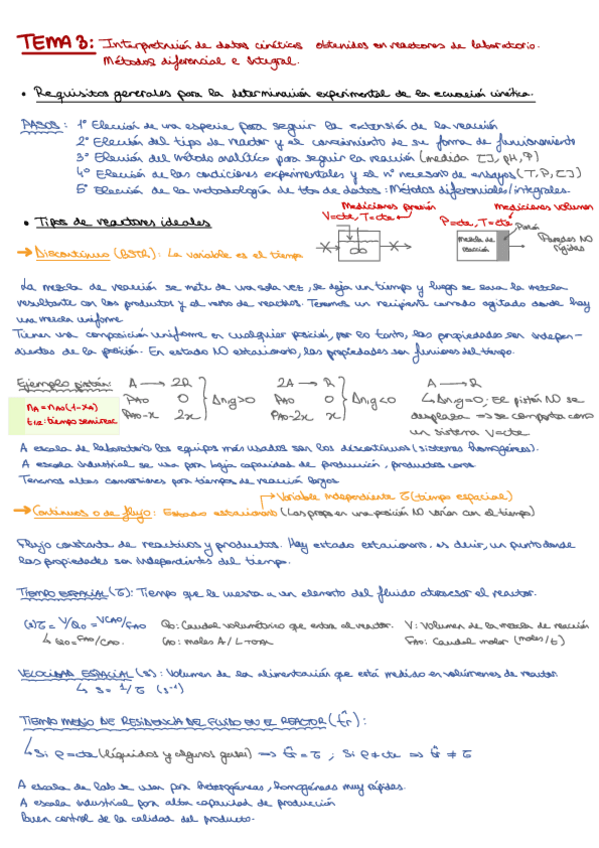 TEMA 3: Interpretación de datos cinéticos obtenidos en reactores de laboratorio.
Métodos diferencial e Integral.
• Requisitos generales para la determinación experimental de la ecuación cinética.
PASOS: 1º Elección de una especie para seguir la extensión de la reacción
2º Elección del tipo de reactor y el conocimiento de su forma de funcionamiento
3º Elección del método analítico para seguir la reacción (medida [ ], pH, P)
4º Elección de las condiciones experimentales y el nº necesario de ensayos (T, P, [ ])
5º Elección de la metodología de tto de datos: Métodos diferenciales/integrales.
Mediciones presión
V=cte, T=cte
mediciones volumen
P=cte, T=cte
Pistón
Mezcla de reacción
Paredes NO rígidas
• Tipos de reactores ideales
→ Discontinuo (BSTR): La variable es el tiempo
La mezcla de reacción se mete de una sola vez, se deja un tiempo y luego se saca la mezcla
resultante con los productos y el resto de reactivos. Tenemos un recipiente cerrado agitado donde hay
una mezcla uniforme
Tienen una composición uniforme en cualquier posición, por lo tanto, las propiedades son indepen-
dientes de la posición. En estado NO estacionario, las propiedades son funciones del tiempo.
Ejemplo pistón: A → 2R 2A → R A → R
PA0 0 } Δng>0 PA0 0 } Δng<0 ↳ Δng=0; el pistón NO se
PA0-x 2x PA0-2x x desplaza → se comporta como
un sistema V=cte
nA = nA0(1-xA)
t1/2: tiempo semireac
A escala de laboratorio los equipos más usados son los discontinuos (sistemas homogéneos).
A escala industrial se usa para baja capacidad de producción, productos caros
Tenemos altas conversiones para tiempos de reacción largos
→ Variable independiente τ (tiempo espacial)
→ Continuos o de flujo: Estado estacionario (Las props en una posición NO varían con el tiempo)
Flujo constante de reactivos y productos. Hay estado estacionario. es decir, un punto donde
las propiedades son independientes del tiempo.
TIEMPO ESPACIAL (τ): Tiempo que le cuesta a un elemento del fluido atravesar el reactor.
(s) τ = V/Q0 = VCA0/FA0 Q0: Caudal volumétrico que entra al reactor. V: Volumen de la mezcla de reacción
↳ Q0 = FA0/CA0. CA0: moles A / L TOTAL FA0: Caudal molar (moles/t)
VELOCIDAD ESPACIAL (s): Volumen de la alimentación que está medido en volúmenes de reactor
↳ s = 1/τ (s⁻¹)
TIEMPO MEDIO DE RESIDENCIA DEL FLUIDO EN EL REACTOR (t̂r):
↳ Si ρ=cte (líquidos y algunos gases) ⇒ t̂r = τ ; Si ρ≠cte ⇒ t̂r ≠ τ
A escala de lab se usan para heterogéneas, homogéneas muy rápidas.
A escala industrial para alta capacidad de producción
Buen control de la calidad del producto.